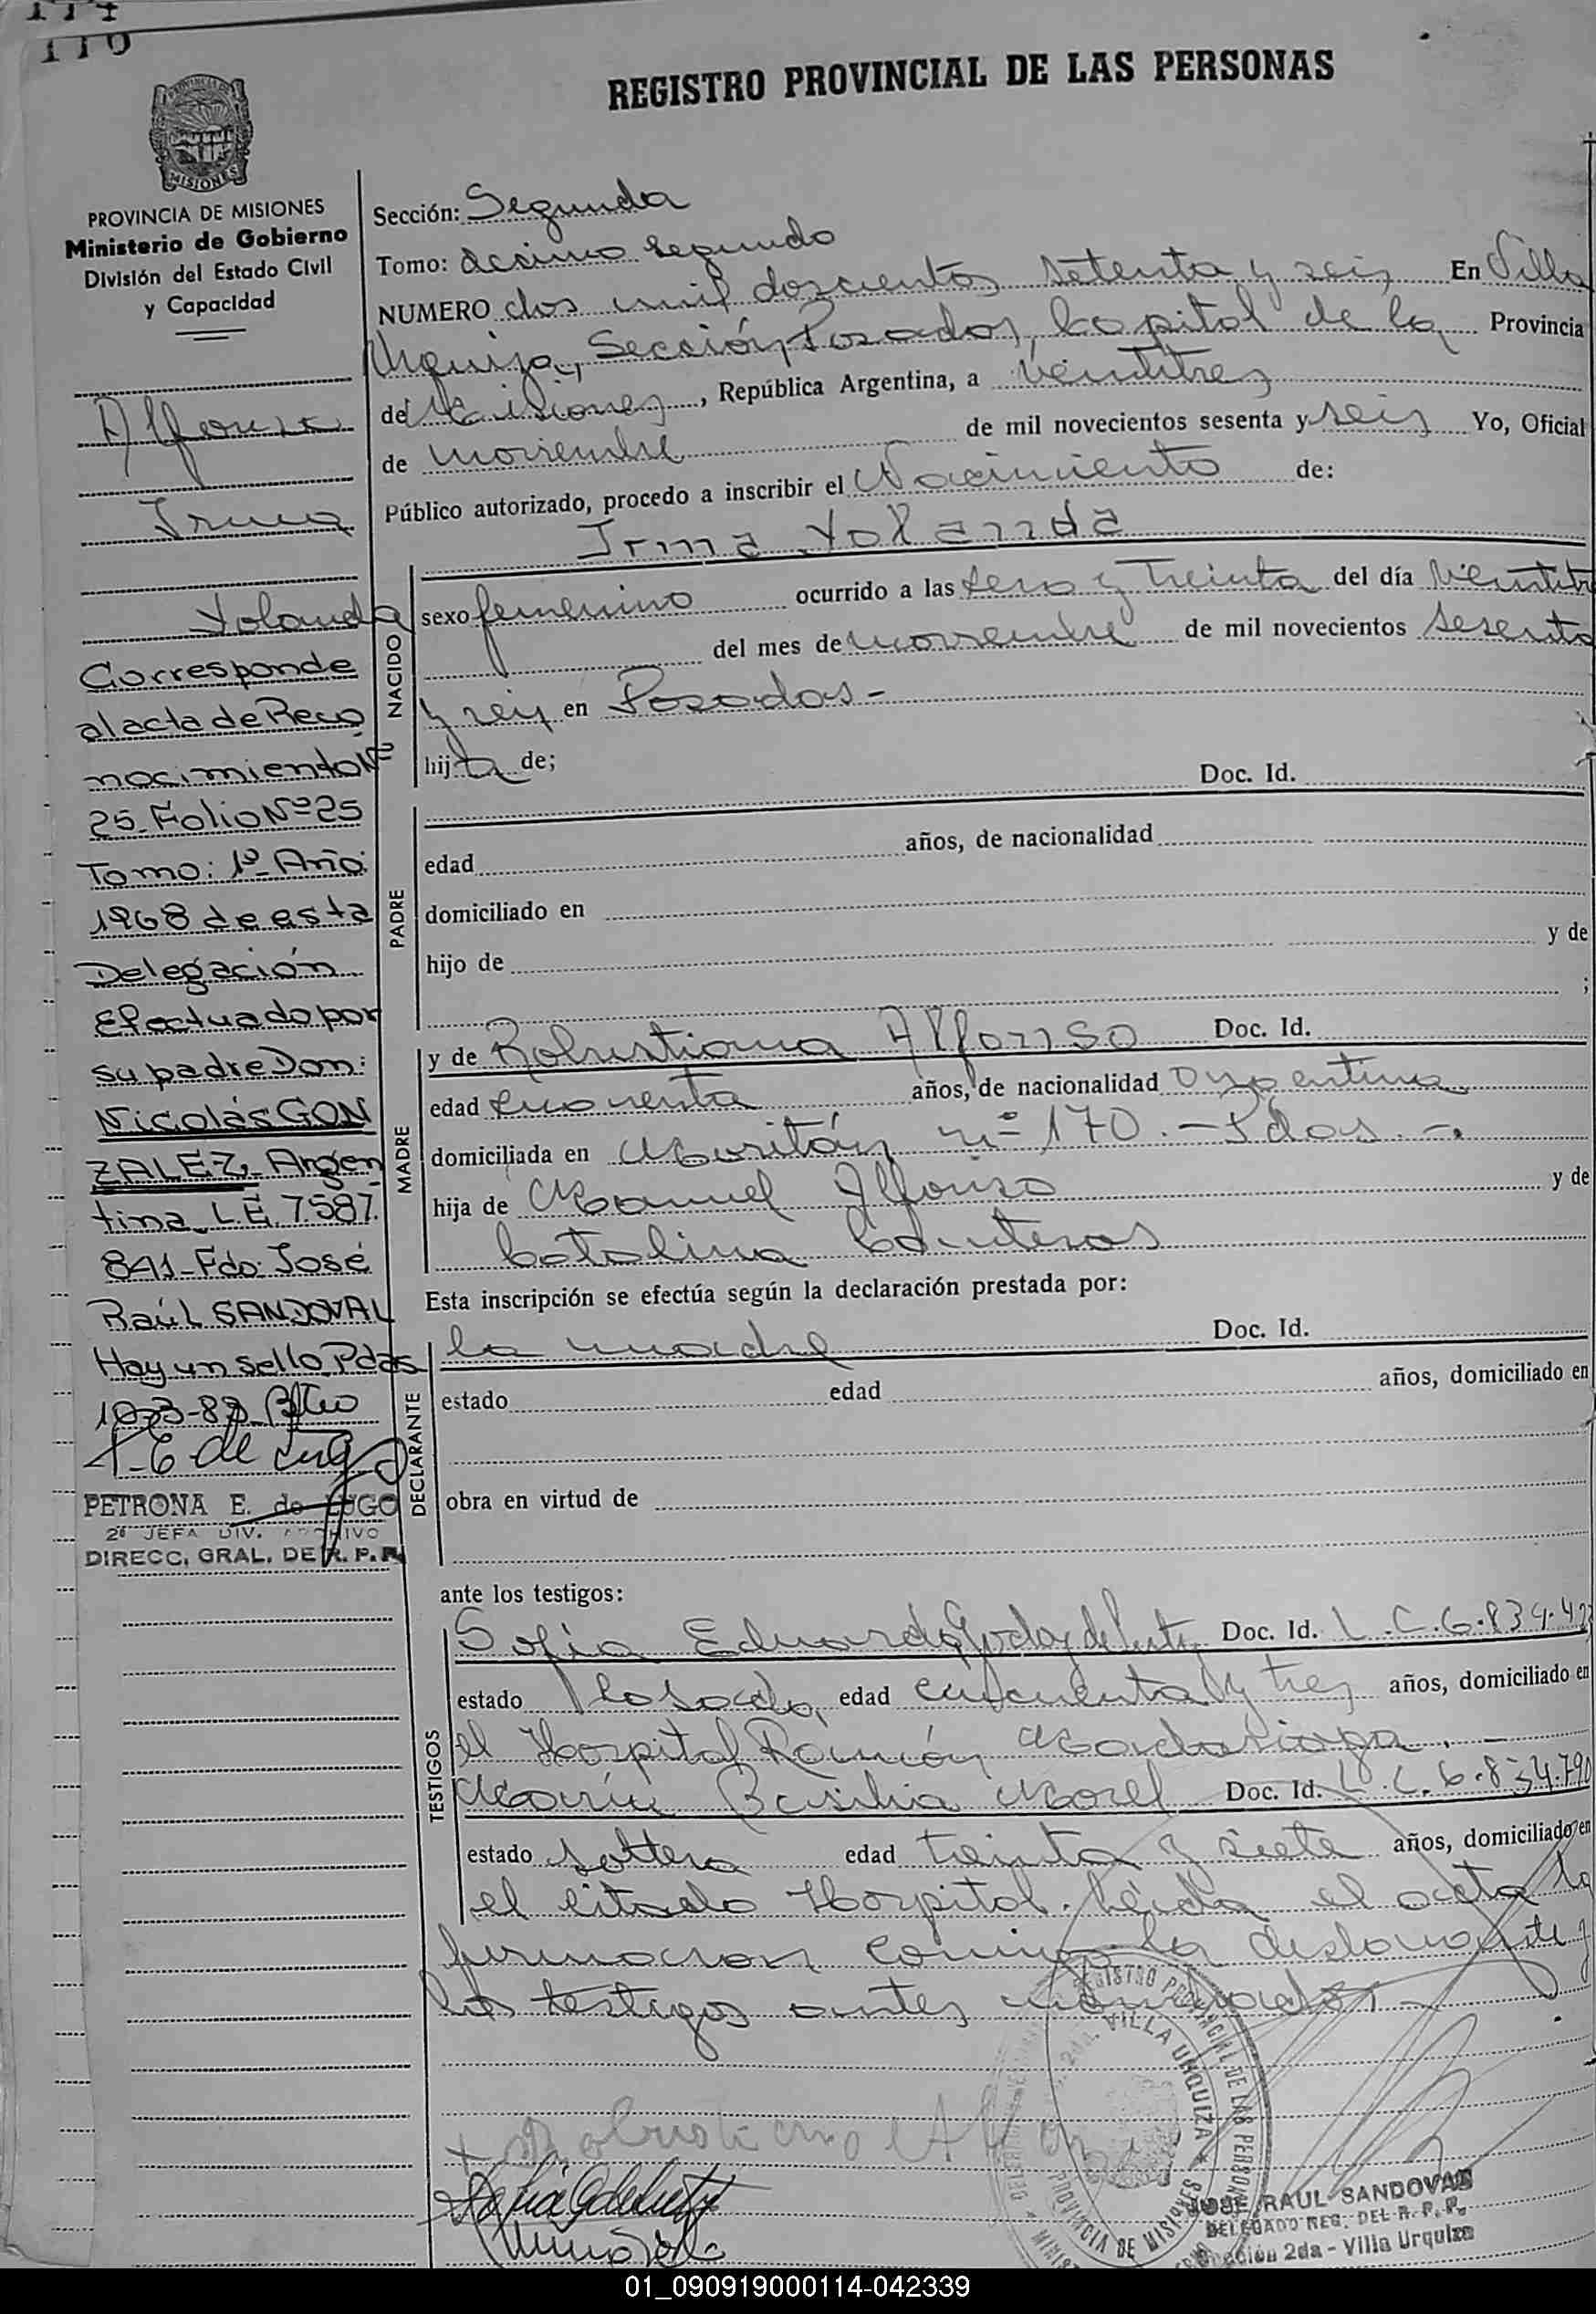 110
REGISTRO PROVINCIAL DE LAS PERSONAS
MISIONES
PROVINCIA DE MISIONES
Ministerio de Gobierno
División del Estado Civil
y Capacidad
Alfonso
Irma
Yolanda
Corresponde
al acta de Reco
nocimiento Nº
25 Folio Nº 25
Tomo: 1º Año:
1968 de esta
Delegación
Efectuado por
su padre Don:
Nicolás GON
ZALEZ, Argen
tina L.E. 7.587.
841- Fdo: José
Raúl SANDOVAL
Hay un sello. Pdas
PETRONA E. de LUGO
2ª JEFA DIV. ARCHIVO
DIRECC. GRAL. DE R. P. P.
Sección: Segunda
Tomo: décimo segundo
NUMERO dos mil doscientos setenta y seis En Villa
Urquiza, Sección Posadas, Capital de la Provincia
de Misiones, República Argentina, a Veintitres
de noviembre de mil novecientos sesenta y seis Yo, Oficial
Público autorizado, procedo a inscribir el Nacimiento de:
Irma Yolanda
NACIDO
sexo femenino ocurrido a las cero y treinta del día Veintitr
del mes de noviembre de mil novecientos sesenta
y seis en Posadas -
hija de;
Doc. Id.
PADRE
edad años, de nacionalidad
domiciliado en
hijo de y de
;
MADRE
y de Robustiana Alfonso Doc. Id.
edad cuarenta años, de nacionalidad Argentina
domiciliada en nº 170 - Pdas -
hija de Manuel Alfonso y de
Catalina
Esta inscripción se efectúa según la declaración prestada por:
DECLARANTE
la madre Doc. Id.
estado edad años, domiciliado en
obra en virtud de
ante los testigos:
TESTIGOS
Sofia Doc. Id. L.C. 6.834.42
estado Casada, edad cincuenta y tres años, domiciliado en
el Hospital Ramón Madariaga. -
María Basilia Morel Doc. Id. L.C. 6.834.790
estado soltera edad treinta y siete años, domiciliado en
el citado Hospital. Leída el acta la
firmaron conmigo la declarante y
los testigos antes nombrados
REGISTRO PROVINCIAL DE LAS PERSONAS
VILLA URQUIZA
PROVINCIA DE MISIONES
JOSE RAUL SANDOVAL
DELEGADO REG. DEL R. P. P.
Sección 2da - Villa Urquiza
01_090919000114-042339